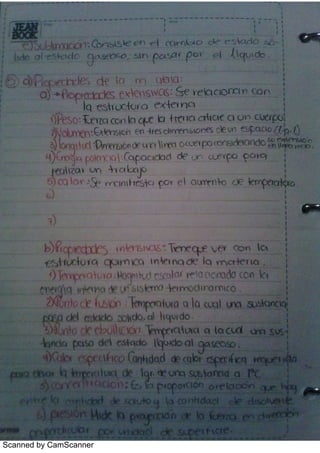 JEAN BOOK
e) Sublimación: Consiste en el cambio de estado só-
lido al estado gaseoso, sin pasar por el líquido.
Propiedades de la m ateria:
a) → Propiedades extensivas: Se relacionan con
la estructura externa
1) Peso: Fuerza con la que la tierra atrae a un cuerpo
2) Volumen: Extensión en tres dimensiones de un espacio
3) longitud: Dimensión de una línea o cuerpo considerando su extensión
en línea recta.
4) Energía potencial: Capacidad de un cuerpo para
realizar un trabajo
5) calor: Se manifiesta por el aumento de temperatura
6)
7)
b) Propiedades intensivas: Tiene que ver con la
estructura química interna de la materia.
1) Temperatura: Magnitud escalar relacionada con la
energía interna de un sistema termodinámico.
2) Punto de fusión: Temperatura a la cual una sustancia
pasa del estado solido, al líquido.
3) Punto de ebullición: Temperatura a la cual una sus-
tancia pasa del estado líquido al gaseoso.
4) Calor específico: Cantidad de calor específica requerida
para elevar la temperatura de 1gr de una sustancia a 1°C
5) concentración: Es la proporción o relación que hay
entre la cantidad de soluto y la cantidad de disolvente
6) presión: Mide la proyección de la fuerza en dirección
perpendicular por unidad de superficie.
Scanned by CamScanner